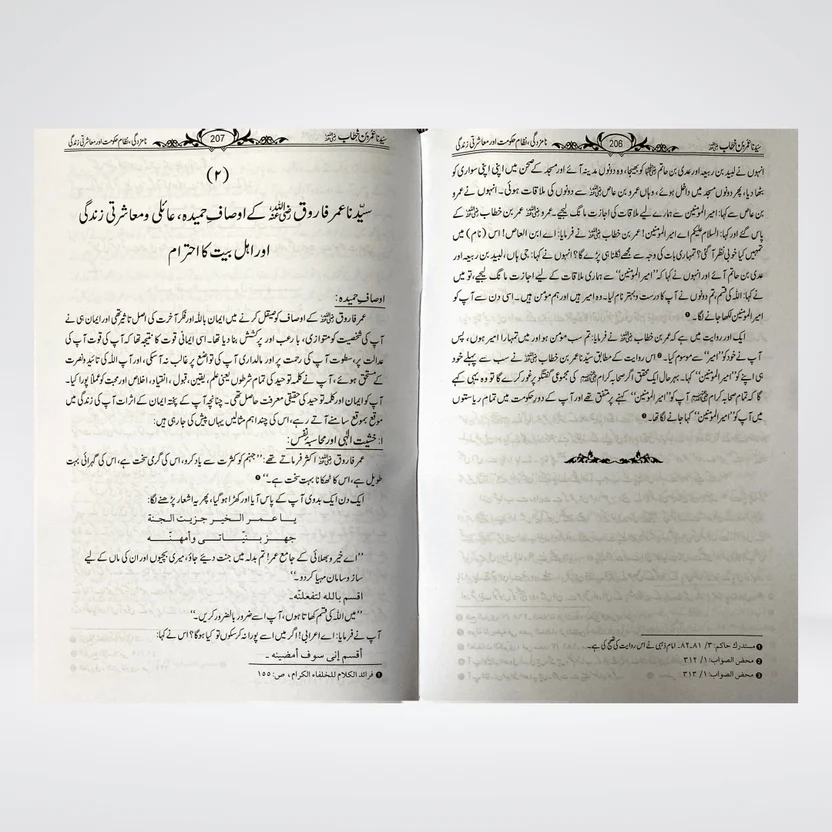 سیّدنا عمر بن خطاب رضی اللہ عنہ
206
نامزدگی، نظام حکومت اور معاشرتی زندگی
انہوں نے لبید بن ربیعہ اور عدی بن حاتم رضی اللہ عنہما کو بھیجا، وہ دونوں مدینہ آئے اور مسجد کے صحن میں اپنی اپنی سواری کو
بٹھا دیا، پھر دونوں مسجد میں داخل ہوئے، وہاں عمرو بن عاص رضی اللہ عنہ سے دونوں کی ملاقات ہوئی۔ انہوں نے عمرو
بن عاص سے کہا: امیر المؤمنین سے ہمارے لیے ملاقات کی اجازت مانگ لیجیے۔ عمرو رضی اللہ عنہ عمر بن خطاب رضی اللہ عنہ کے
پاس گئے اور کہا: السلام علیکم اے امیر المؤمنین! عمر بن خطاب رضی اللہ عنہ نے فرمایا: اے ابن العاص! اس (نام) میں
تمہیں کیا خوبی نظر آ گئی؟ تمہاری بات کی وجہ سے مجھے نکلنا ہی پڑے گا؟ انہوں نے کہا: جی ہاں لبید بن ربیعہ اور
عدی بن حاتم آئے اور انہوں نے کہا کہ ”امیر المؤمنین“ سے ہماری ملاقات کے لیے اجازت مانگ لیجیے، تو میں
نے کہا: اللہ کی قسم، تم دونوں نے آپ کا درست و بہتر نام لیا۔ وہ امیر ہیں اور ہم مؤمن ہیں۔ اسی دن سے آپ کو
امیر المؤمنین لکھا جانے لگا۔ ❶
ایک اور روایت میں ہے کہ عمر بن خطاب رضی اللہ عنہ نے فرمایا: تم سب مؤمن ہو اور میں تمہارا امیر ہوں، پس
آپ نے خود کو ”امیر“ سے موسوم کیا۔ ❷ اس روایت کے مطابق سیّدنا عمر بن خطاب رضی اللہ عنہ نے سب سے پہلے خود
ہی اپنے کو ”امیر المؤمنین“ کہا۔ بہرحال ایک محقق اگر صحابہ کرام رضی اللہ عنہم کی مجموعی گفتگو پر غور کرے گا تو وہ یہی کہے
گا کہ تمام صحابہ کرام رضی اللہ عنہم آپ کو ”امیر المؤمنین“ کہنے پر متفق تھے اور آپ کے دورِ حکومت میں تمام ریاستوں
میں آپ کو ”امیر المؤمنین“ کہا جانے لگا تھا۔ ❸
❶ مستدرك حاكم: ۳/ ۸۱۔۸۲، امام ذہبی نے اس روایت کی تصحیح کی ہے۔
❷ محض الصواب: ۱/ ۳۱۲
❸ محض الصواب: ۱/ ۳۱۳
سیّدنا عمر بن خطاب رضی اللہ عنہ
207
نامزدگی، نظام حکومت اور معاشرتی زندگی
(۲)
سیّدنا عمر فاروق رضی اللہ عنہ کے اوصافِ حمیدہ، عائلی و معاشرتی زندگی
اور اہل بیت کا احترام
اوصافِ حمیدہ:
عمر فاروق رضی اللہ عنہ کے اوصاف کو صیقل کرنے میں ایمان باللہ اور فکر آخرت کی اصل تاثیر تھی اور ایمان ہی نے
آپ کی شخصیت کو متوازی، بارعب اور پرکشش بنا دیا تھا۔ اسی ایمانی قوت کا نتیجہ تھا کہ آپ کی قوت آپ کی
عدالت پر، سطوت آپ کی رحمت پر اور مالداری آپ کی تواضع پر غالب نہ آ سکی، اور آپ اللہ کی تائید و نصرت
کے مستحق ہوئے، آپ نے کلمہ توحید کی تمام شرطوں یعنی علم، یقین، قبول، انقیاد، اخلاص اور محبت کو عملاً پورا کیا۔
آپ کو ایمان اور کلمہ توحید کی حقیقی معرفت حاصل تھی۔ چنانچہ آپ کے پختہ ایمان کے اثرات آپ کی زندگی میں
موقع بموقع سامنے آتے رہے، اس کی چند اہم مثالیں یہاں پیش کی جا رہی ہیں:
۱: خشیت الٰہی اور محاسبۂ نفس:
عمر فاروق رضی اللہ عنہ اکثر فرماتے تھے: ”جہنم کو کثرت سے یاد کرو، اس کی گرمی سخت ہے، اس کی گہرائی بہت
طویل ہے، اس کا ٹھکانا بہت سخت ہے۔“ ❶
ایک دن ایک بدوی آپ کے پاس آیا اور کھڑا ہو گیا، پھر یہ اشعار پڑھنے لگا:
يا عمر الخير جزيت الجنة
جهز بنيّاتي وأمهنّه
”اے خیر و بھلائی کے جامع عمر! تم بدلہ میں جنت دیئے جاؤ، میری بچیوں اور ان کی ماں کے لیے
ساز و سامان مہیا کر دو۔“
اقسم بالله لتفعلنّه۔
”میں اللہ کی قسم کھاتا ہوں، آپ اسے ضرور بالضرور کریں۔“
آپ نے فرمایا: اے اعرابی! اگر میں اسے پورا نہ کر سکوں تو کیا ہوگا؟ اس نے کہا:
أقسم إنى سوف أمضينه ۔
❶ فرائد الكلام للخلفاء الكرام ، ص: ۱۵۵